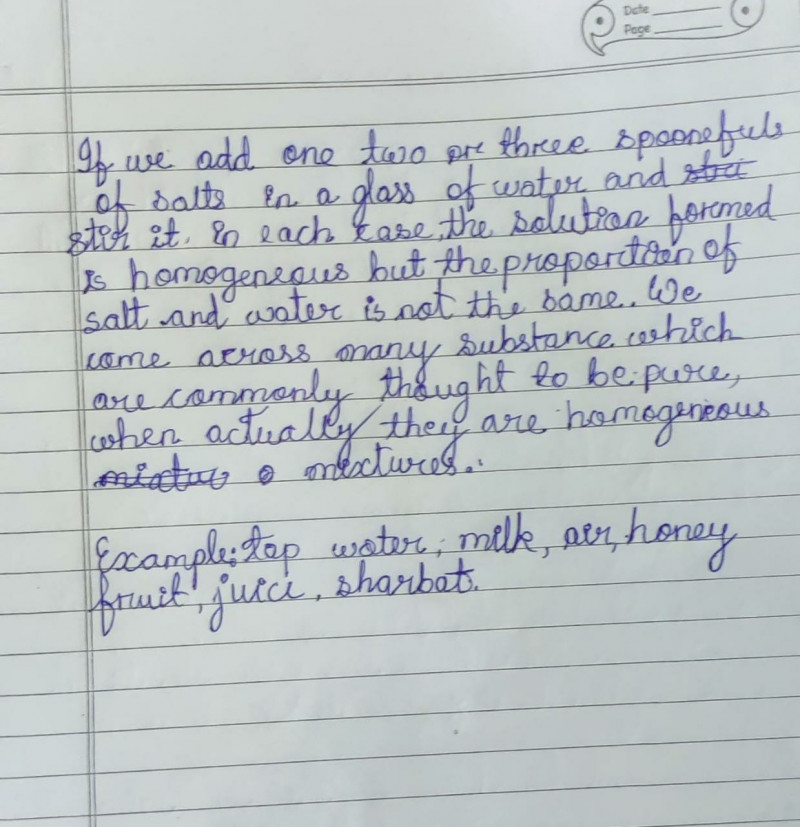 Date
Page
If we add one two or three spoonefuls
of salts in a glass of water and
stir it. In each case, the solution formed
is homogeneous but the proportion of
salt and water is not the same. We
come across many substance which
are commonly thought to be pure,
when actually they are homogeneous
mixtures.
Example: tap water, milk, air, honey
fruit, juici, sharbat.